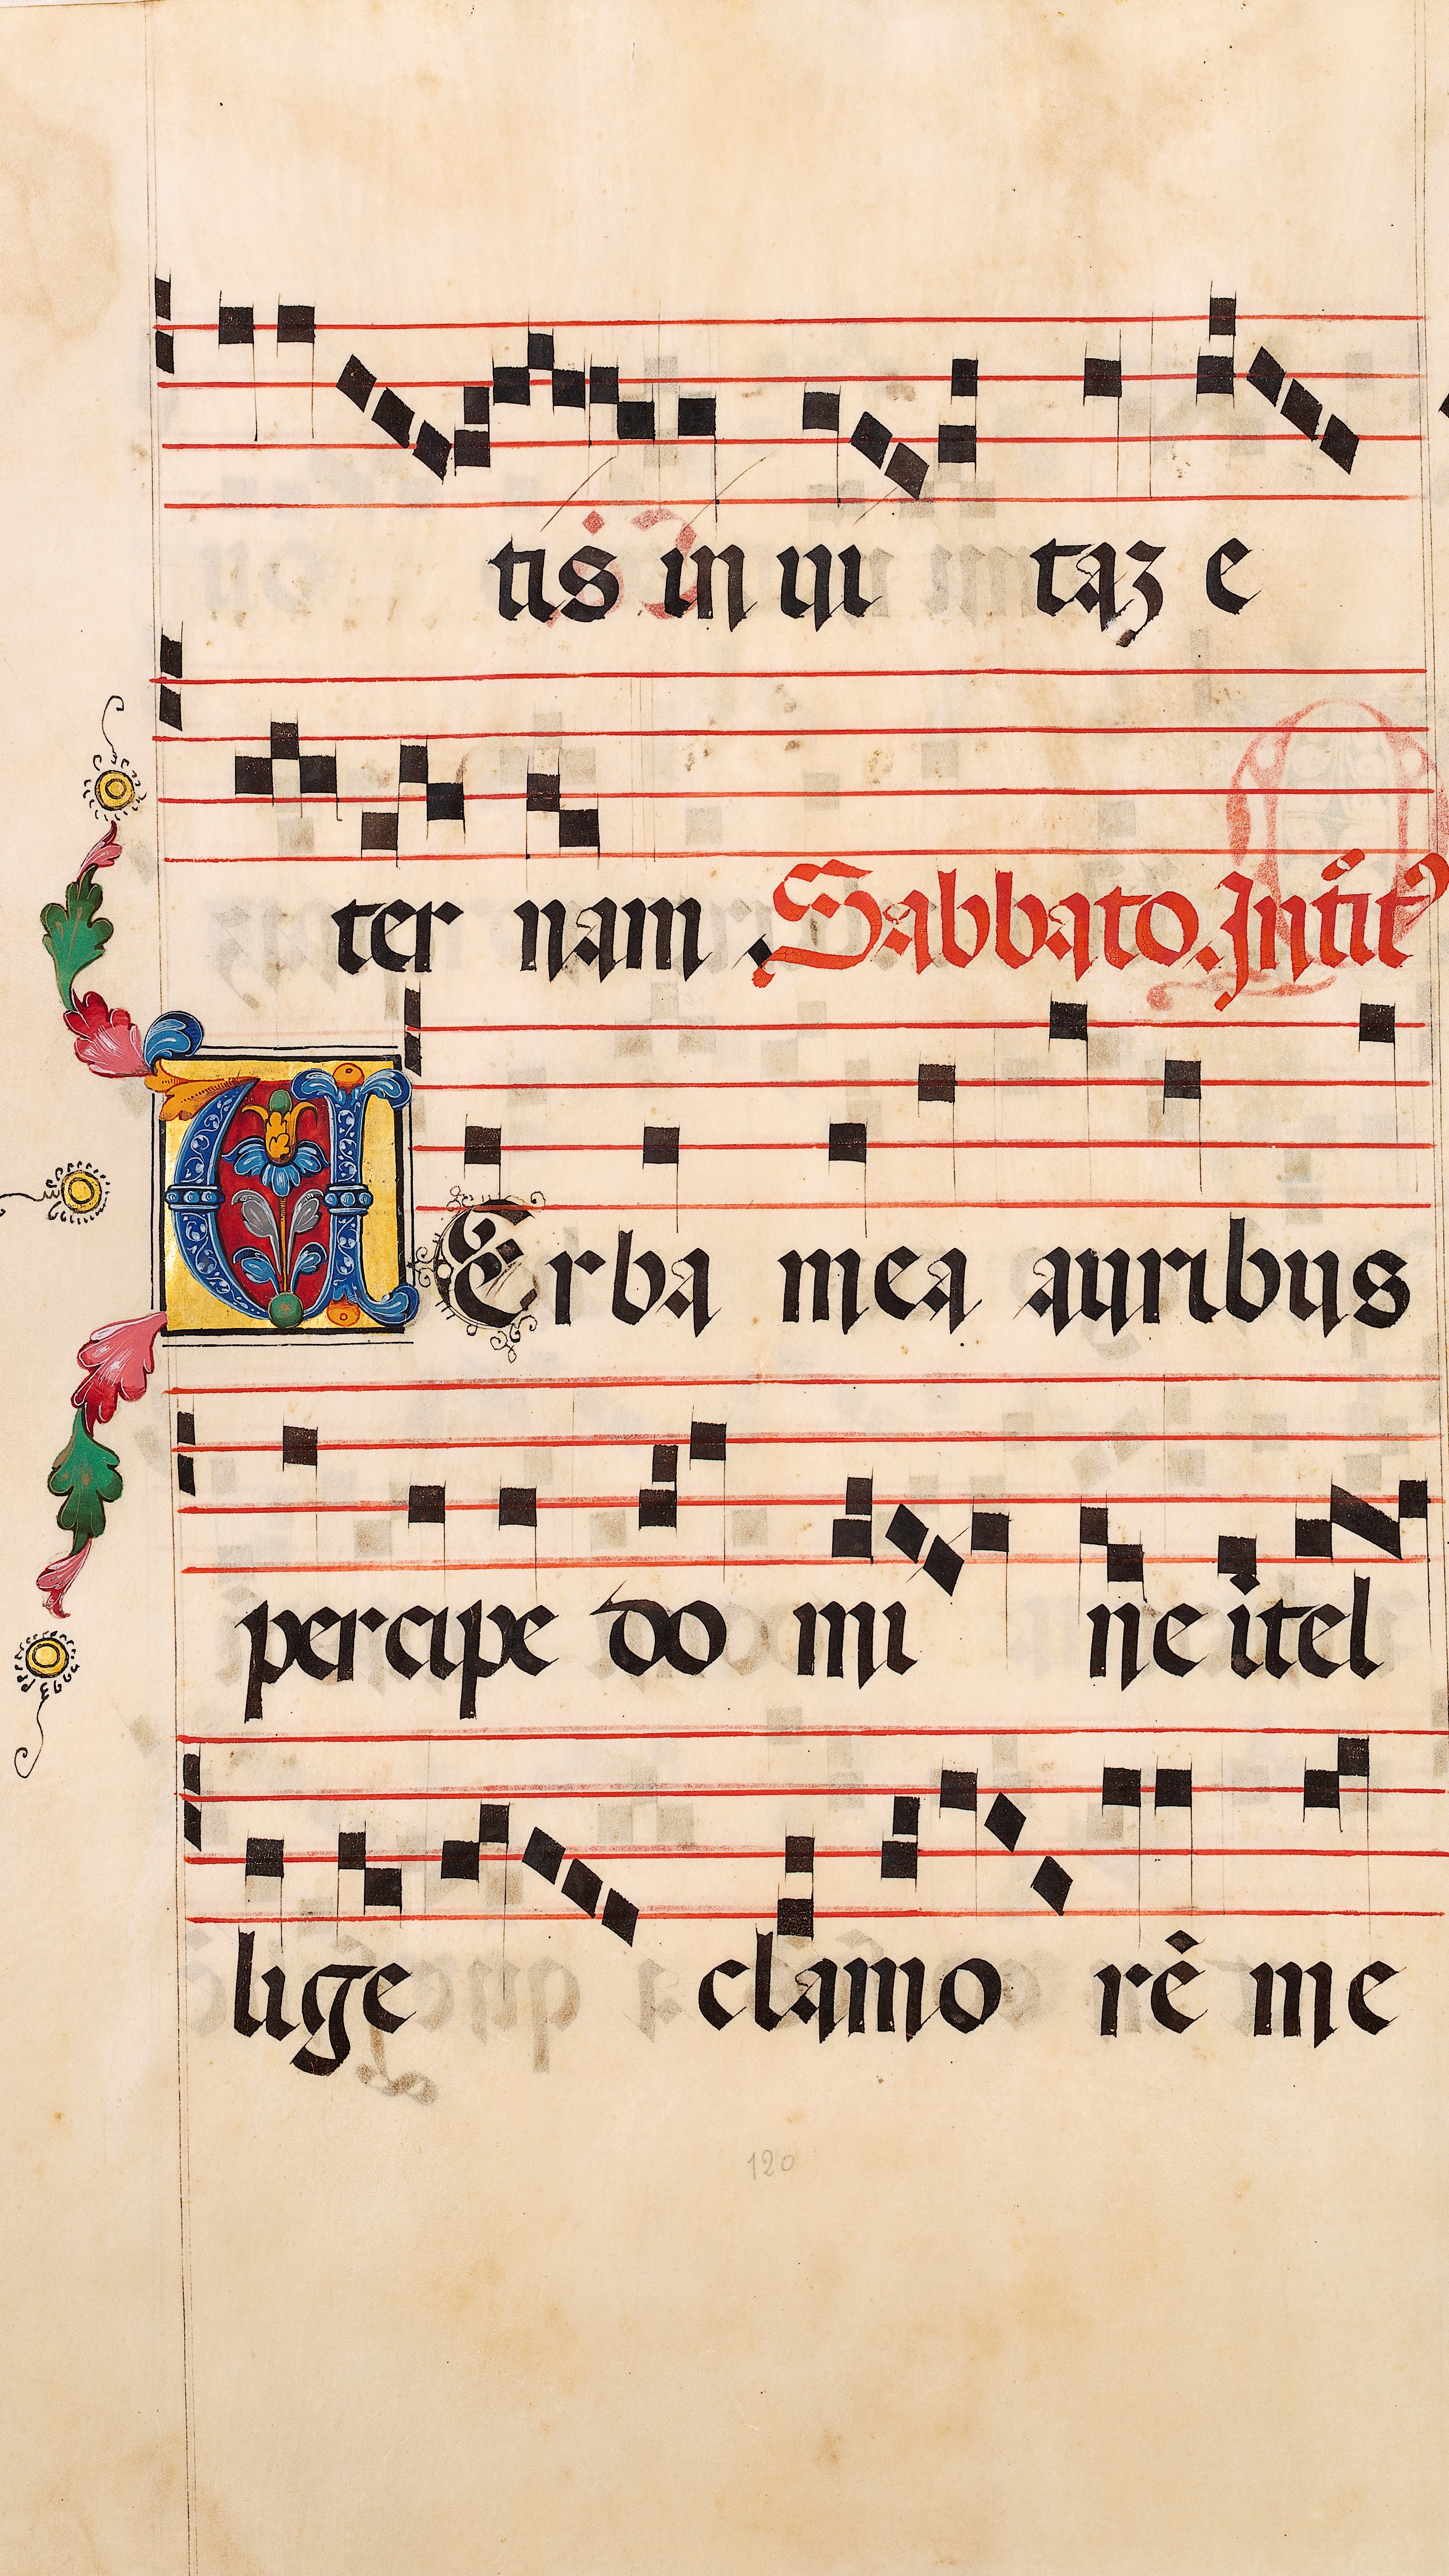 tis in ui taȝ e
ter nam . Sabbato. Intĩt⁹
VErba mea auribus
percipe do mi ne ĩtel
lige clamo rē me
120